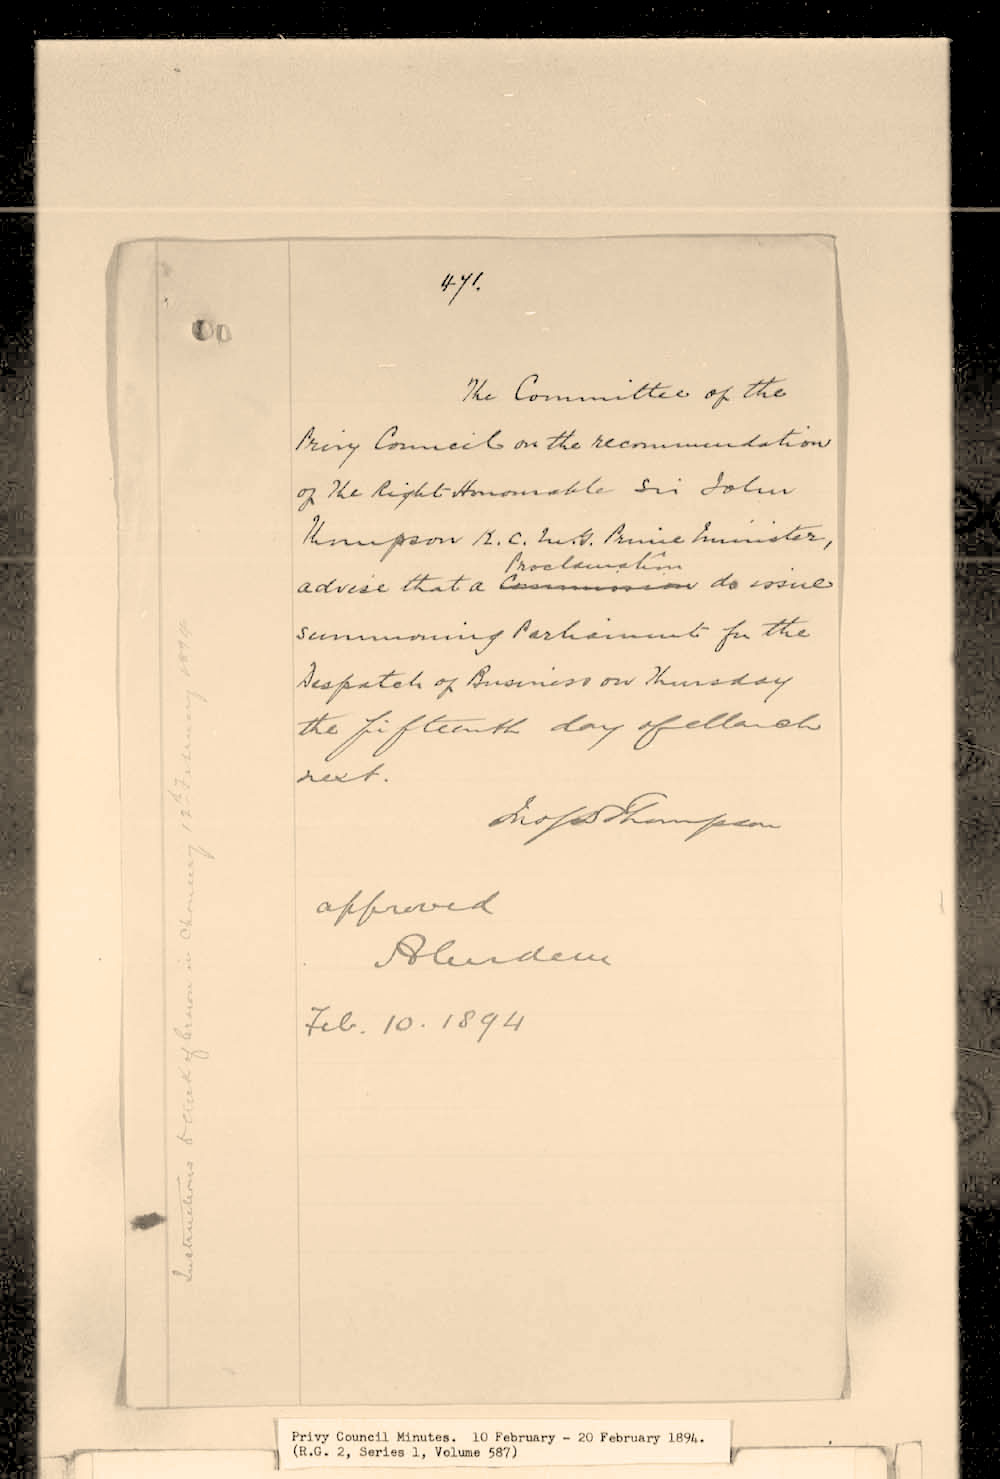 471.
The Committee of the
Privy Council on the recommendation
of The Right Honourable Sir John
Thompson K.C.M.G. Prime Minister,
Proclamation
advise that a Commission do issue
summoning Parliament for the
Despatch of Business on Thursday
the fifteenth day of March
next.
Jno S D Thompson
approved
Aberdeen
Feb. 10. 1894
Instructions to Clerk of Crown in Chancery 12th February 1894
Privy Council Minutes. 10 February - 20 February 1894.
(R.G. 2, Series 1, Volume 587)